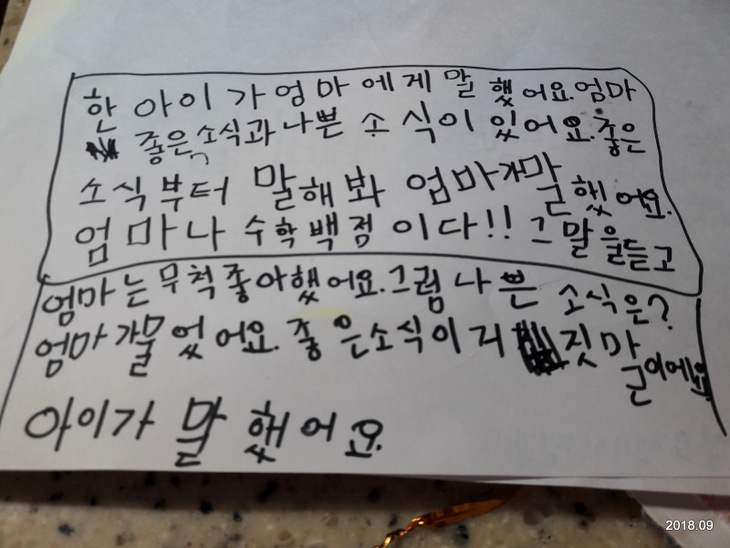 한 아이가 엄마에게 말했어요. 엄마
좋은 소식과 나쁜 소식이 있어요. 좋은
소식부터 말해봐 엄마가 말했어요.
엄마 나 수학 백점이다!! 그 말을 들고
엄마는 무척 좋아했어요. 그럼 나쁜 소식은?
엄마가 물었어요. 좋은 소식이 거짓말이에요
아이가 말했어요.
2018.09